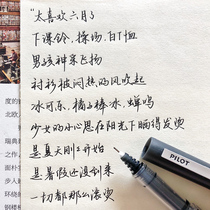 "太喜欢六月了
下课铃、操场、白T恤
男孩神采飞扬
衬衫被闷热的风吹起
冰可乐、橘子棒冰、蝉鸣
少女的小心思在阳光下晒得发烫
是夏天刚刚开始
是暑假还没到来
一切都那么滚烫
PILOT